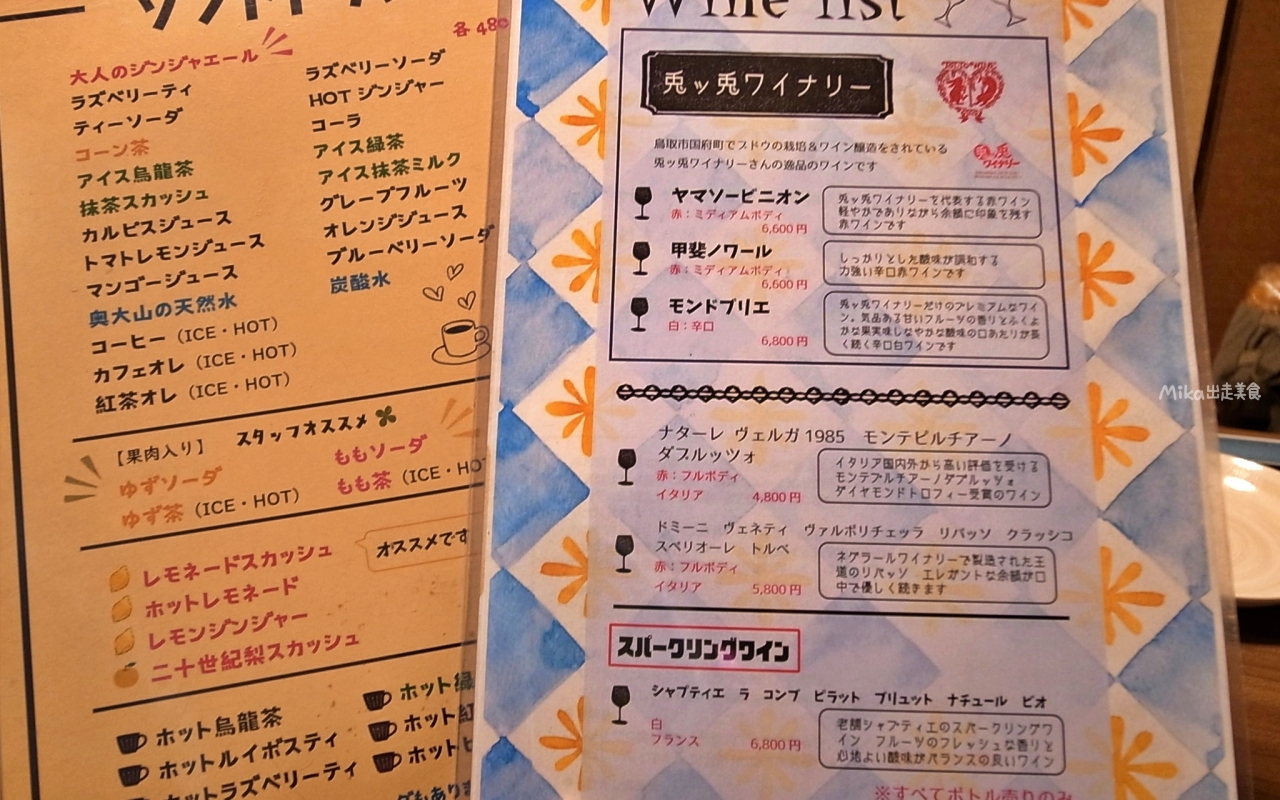 ソフトドリンク
各480
大人のジンジャエール
ラズベリーティ
ティーソーダ
コーン茶
アイス烏龍茶
抹茶スカッシュ
カルピスジュース
トマトレモンジュース
マンゴージュース
奥大山の天然水
コーヒー（ICE・HOT）
カフェオレ（ICE・HOT）
紅茶オレ（ICE・HOT）
ラズベリーソーダ
HOT ジンジャー
コーラ
アイス緑茶
アイス抹茶ミルク
グレープフルーツ
オレンジジュース
ブルーベリーソーダ
炭酸水
【果肉入り】 スタッフオススメ
ゆずソーダ
ゆず茶（ICE・HOT）
ももソーダ
もも茶（ICE・HO
レモネードスカッシュ
オススメです
ホットレモネード
レモンジンジャー
二十世紀梨スカッシュ
ホット烏龍茶
ホットルイボスティ
ホットラズベリーティ
ホット緑
ホット紅
ホット
Wine list
兎ッ兎ワイナリー
鳥取市国府町でブドウの栽培＆ワイン醸造をされている
兎ッ兎ワイナリーさんの逸品のワインです
兎ッ兎
ワイナリー
ヤマソービニオン
赤：ミディアムボディ
6,600円
兎ッ兎ワイナリーを代表する赤ワイン
軽やかでありながら余韻に印象を残す
赤ワインです
甲斐ノワール
赤：ミディアムボディ
6,600円
しっかりとした酸味が調和する
力強い辛口赤ワインです
モンドブリエ
白：辛口
6,800円
兎ッ兎ワイナリーだけのプレミアムなワイ
ン。気品ある甘いフルーツの香りとふくよ
かな果実味しなやかな酸味の口あたりが長
く続く辛口白ワインです
ナターレ ヴェルガ 1985 モンテピルチアーノ
ダブルッツォ
赤：フルボディ
イタリア 4,800円
イタリア国内外から高い評価を受ける
モンテプルチアーノダブルッツォ
ダイヤモンドトロフィー受賞のワイン
ドミーニ ヴェネティ ヴァルポリチェッラ リパッソ クラッシコ
スペリオーレ トルベ
赤：フルボディ
イタリア 5,800円
ネグラールワイナリーで製造された王
道のリパッソ エレガントな余韻が口
中で優しく続きます
スパークリングワイン
シャプティエ ラ コンブ ピラット ブリュット ナチュール ビオ
白
フランス 6,800円
老舗シャプティエのスパークリングワ
イン フルーツのフレッシュな香りと
心地よい酸味がバランスの良いワイン
※すべてボトル売りのみ
Mika出走美食